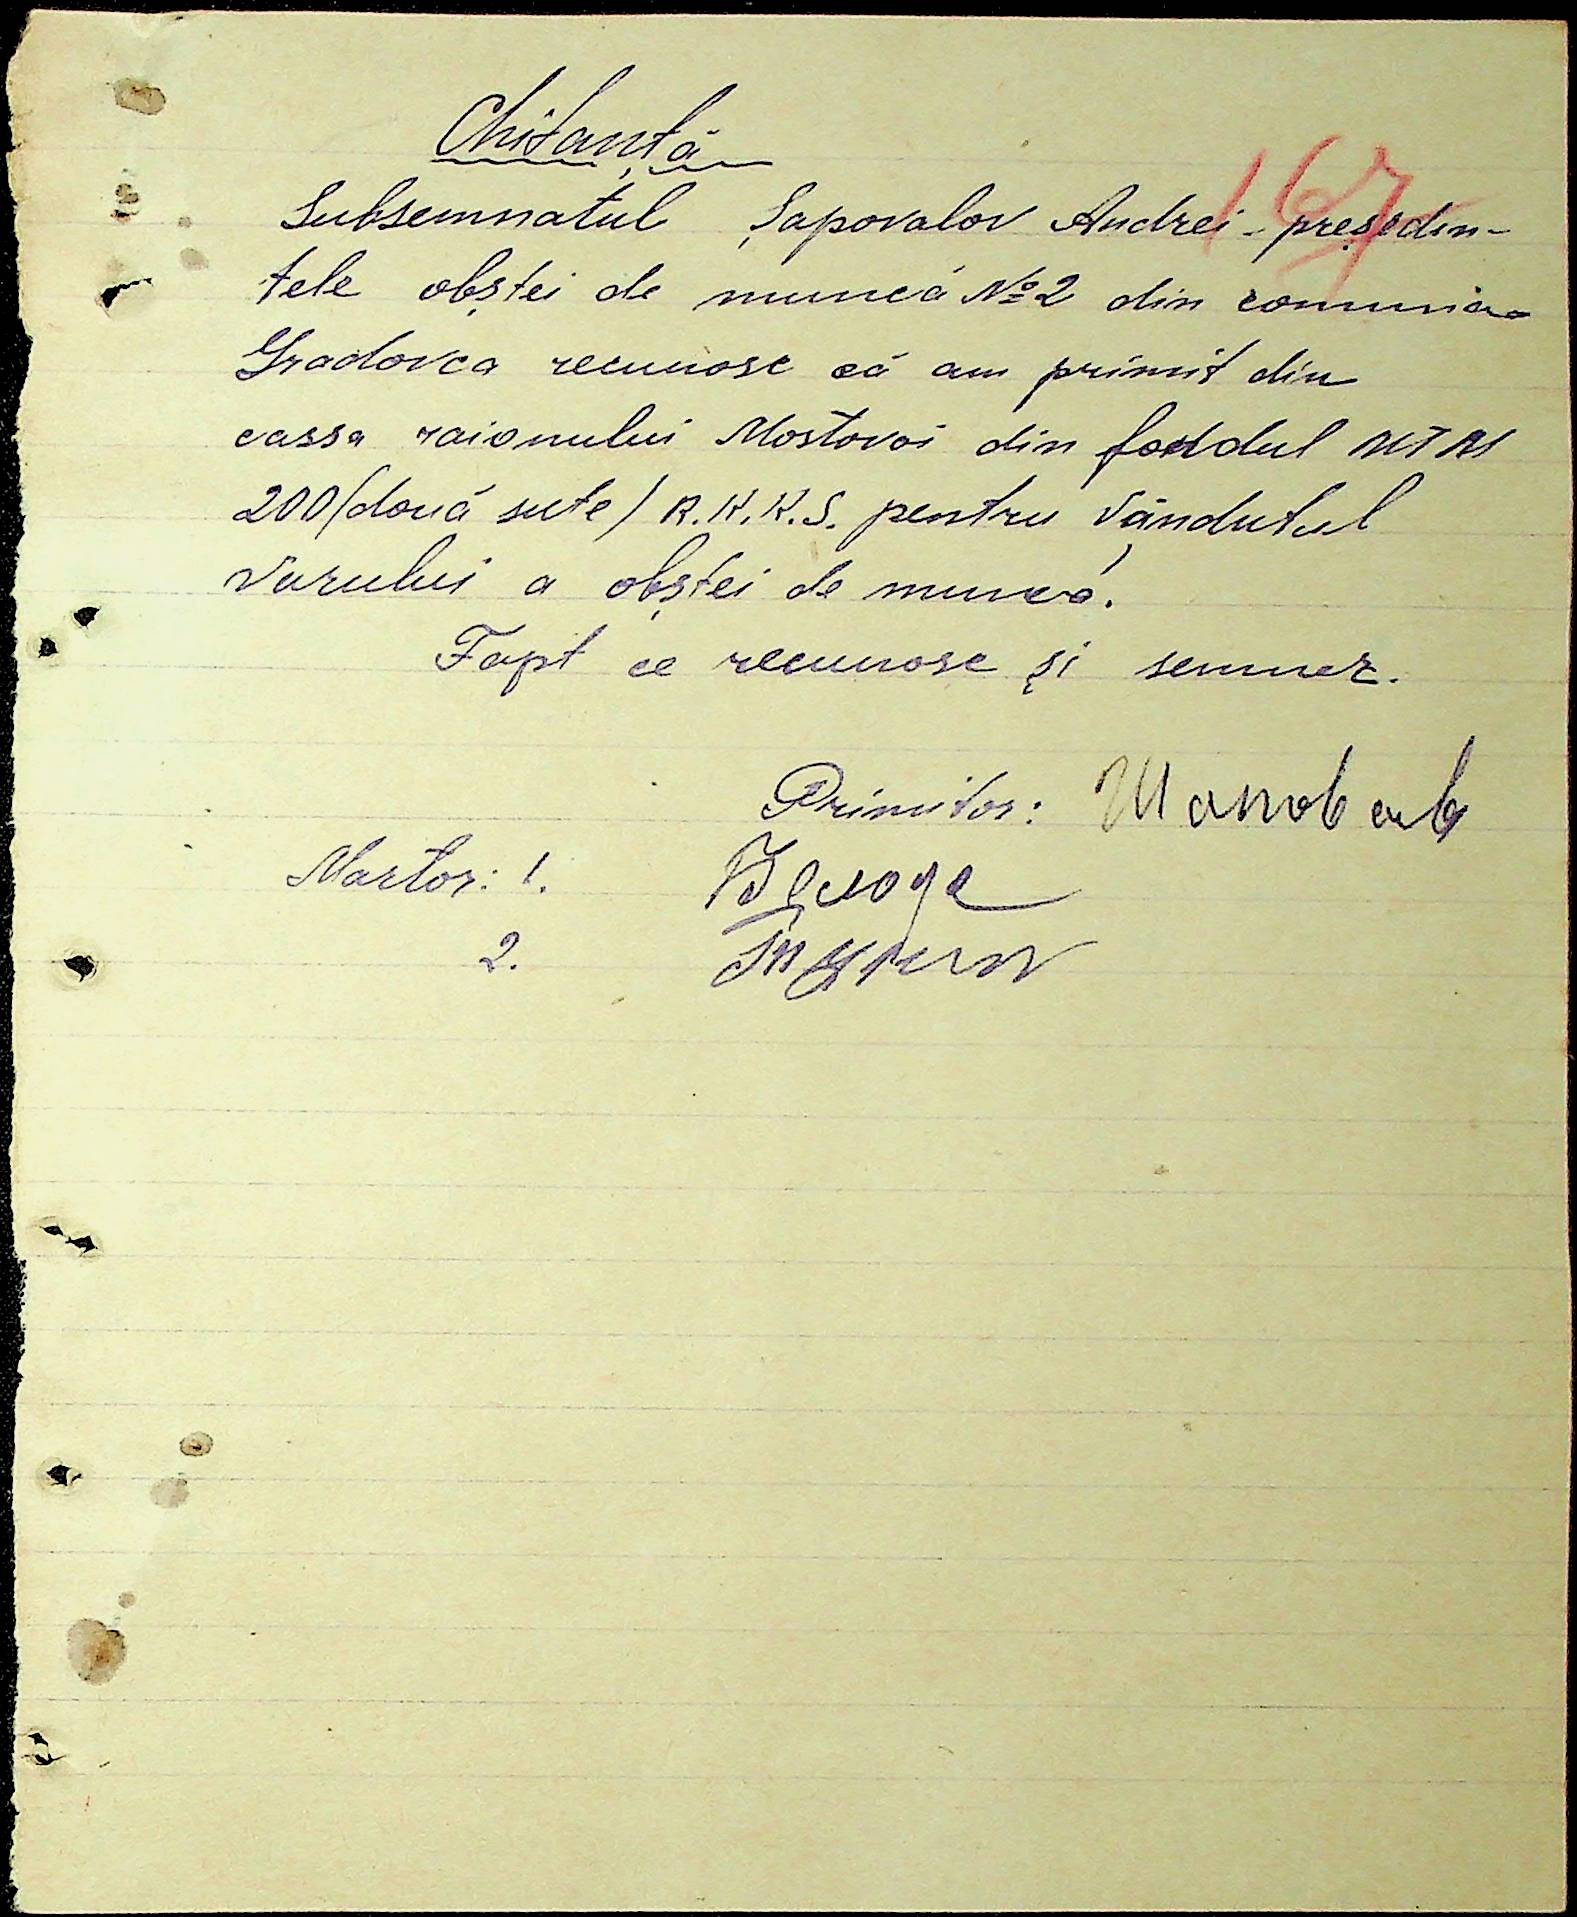 Chitanță
167
Subsemnatul Șapovalov Andrei - președin-
tele obștei de muncă № 2 din comuna
Gradovca recunosc că am primit din
cassa raionului Mostovoi din fondul MTM
200 (două sute) R.K.K.S. pentru vândutul
varului a obștei de muncă.
Fapt ce recunosc și semnez.
Primitor: Шаповалв
Martor: 1.
2.